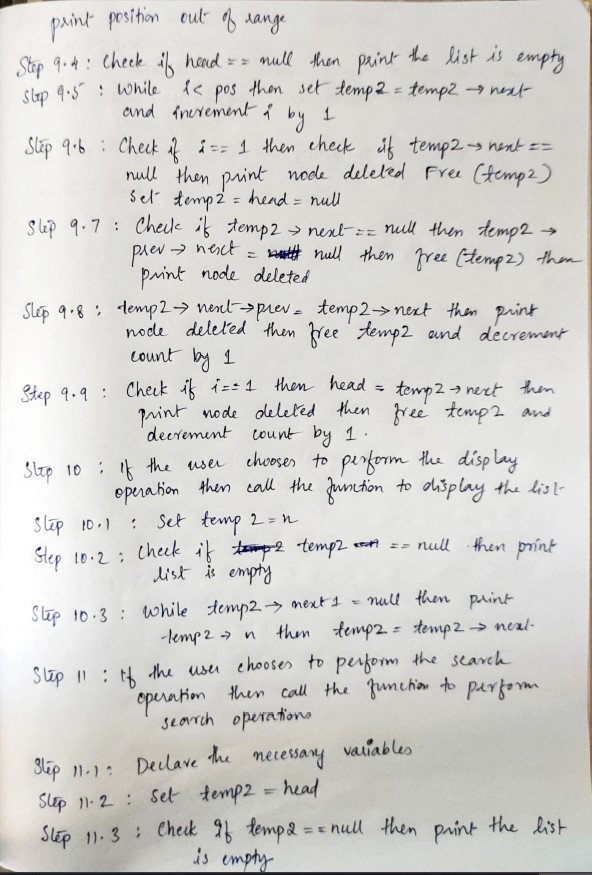 print position out of range
Step 9.4 : Check if head == null then print the list is empty
Step 9.5 : While i < pos then set temp2 = temp2 → next
and increment i by 1
Step 9.6 : Check if i == 1 then check if temp2 → next ==
null then print node deleted Free (temp2)
Set temp2 = head = null
Step 9.7 : Check if temp2 → next == null then temp2 →
prev → next = null then free (temp2) then
print node deleted
Step 9.8 : temp2 → next → prev = temp2 → next then print
node deleted then free temp2 and decrement
count by 1
Step 9.9 : Check if i == 1 then head = temp2 → next then
print node deleted then free temp2 and
decrement count by 1.
Step 10 : If the user chooses to perform the display
operation then call the function to display the list
Step 10.1 : Set temp 2 = n
Step 10.2 : Check if temp2 == null then print
list is empty
Step 10.3 : While temp2 → next 1 = null then print
temp2 → n then temp2 = temp2 → next
Step 11 : If the user chooses to perform the search
operation then call the function to perform
search operations
Step 11.1 : Declare the necessary variables
Step 11.2 : Set temp2 = head
Step 11.3 : Check If temp2 == null then print the list
is empty